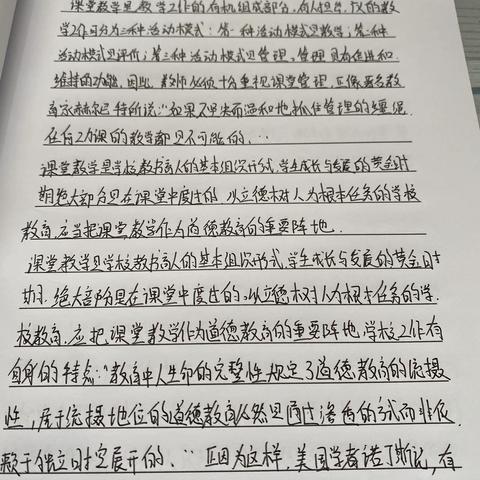 课堂教学是教学工作的有机组成部分，有人但是，仅的教
学工作可分为三种活动模式：第一种活动模式是教学；第二种
活动模式是评价；第三种活动模式是管理。管理具有促进和
维持的功能，因此，教师必须十分重视课堂管理，正像著名教
育家赫尔巴特所说：“如果不坚决而温和地抓住管理的缰绳，
任何功课的教学都是不可能的。”
课堂教学是学校教书育人的基本组织形式，学生成长与发展的黄金时
期绝大部分是在课堂中度过的，以立德树人为根本任务的学校
教育，应当把课堂教学作为道德教育的重要阵地。
课堂教学是学校教书育人的基本组织形式，学生成长与发展的黄金时
期，绝大部分是在课堂中度过的。以立德树人为根本任务的学
校教育，应把课堂教学作为道德教育的重要阵地，学校工作有
自身的特点：“教育中人生命的完整性规定了道德教育的统摄
性，居于统摄地位的道德教育必然是通过渗透的方式而非依
赖于独立时空展开的。”正因为这样，美国学者诺丁斯说，有